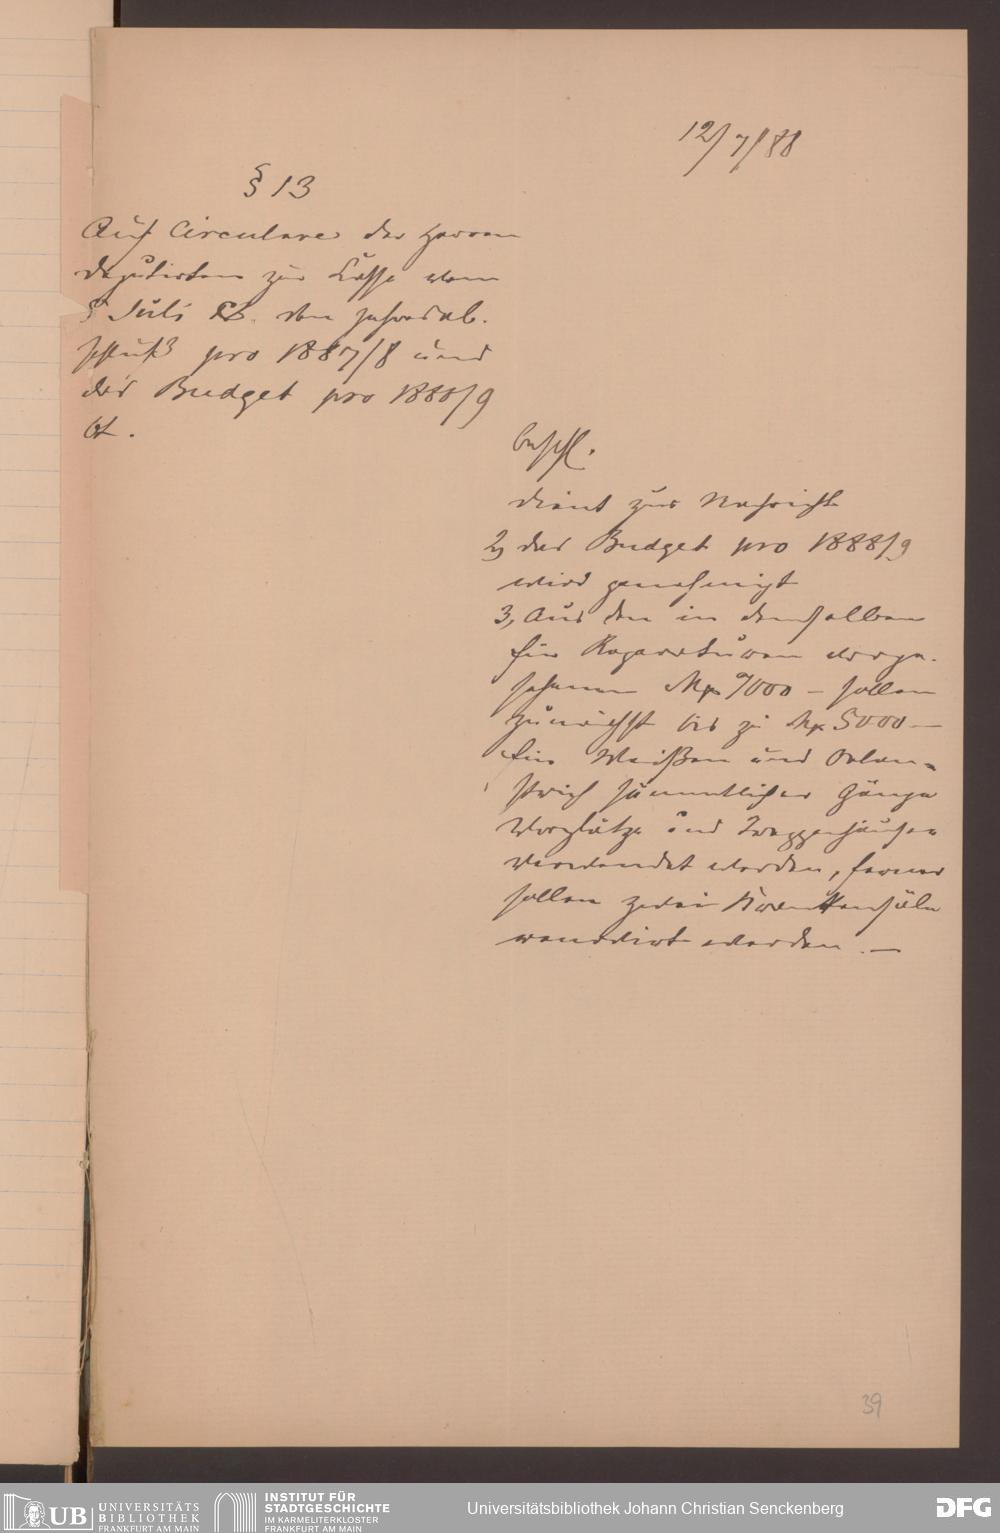 12/7/88
§ 13
Auf Circulare der Herren
Deputirten zur Casse vom
Juli den Jahresab-
schluß pro 1887/8 und
das Budget pro 1888/9
bt.
beschl.
dient zur Nachricht
2, das Budget pro 1888/9
wird genehmigt
3, Aus den in demselben
für Reparaturen vorge-
sehenen M 7000 – sollen
zunächst bis zu M 5000 –
für Weißen und Oelan-
strich sämmtlicher Gänge
Vorplätze und Treppenhäuser
verwendet werden, ferner
sollen zwei Krankensäle
renovirt werden. —
39
UB UNIVERSITÄTS
BIBLIOTHEK
FRANKFURT AM MAIN
INSTITUT FÜR
STADTGESCHICHTE
IM KARMELITERKLOSTER
FRANKFURT AM MAIN
Universitätsbibliothek Johann Christian Senckenberg
DFG